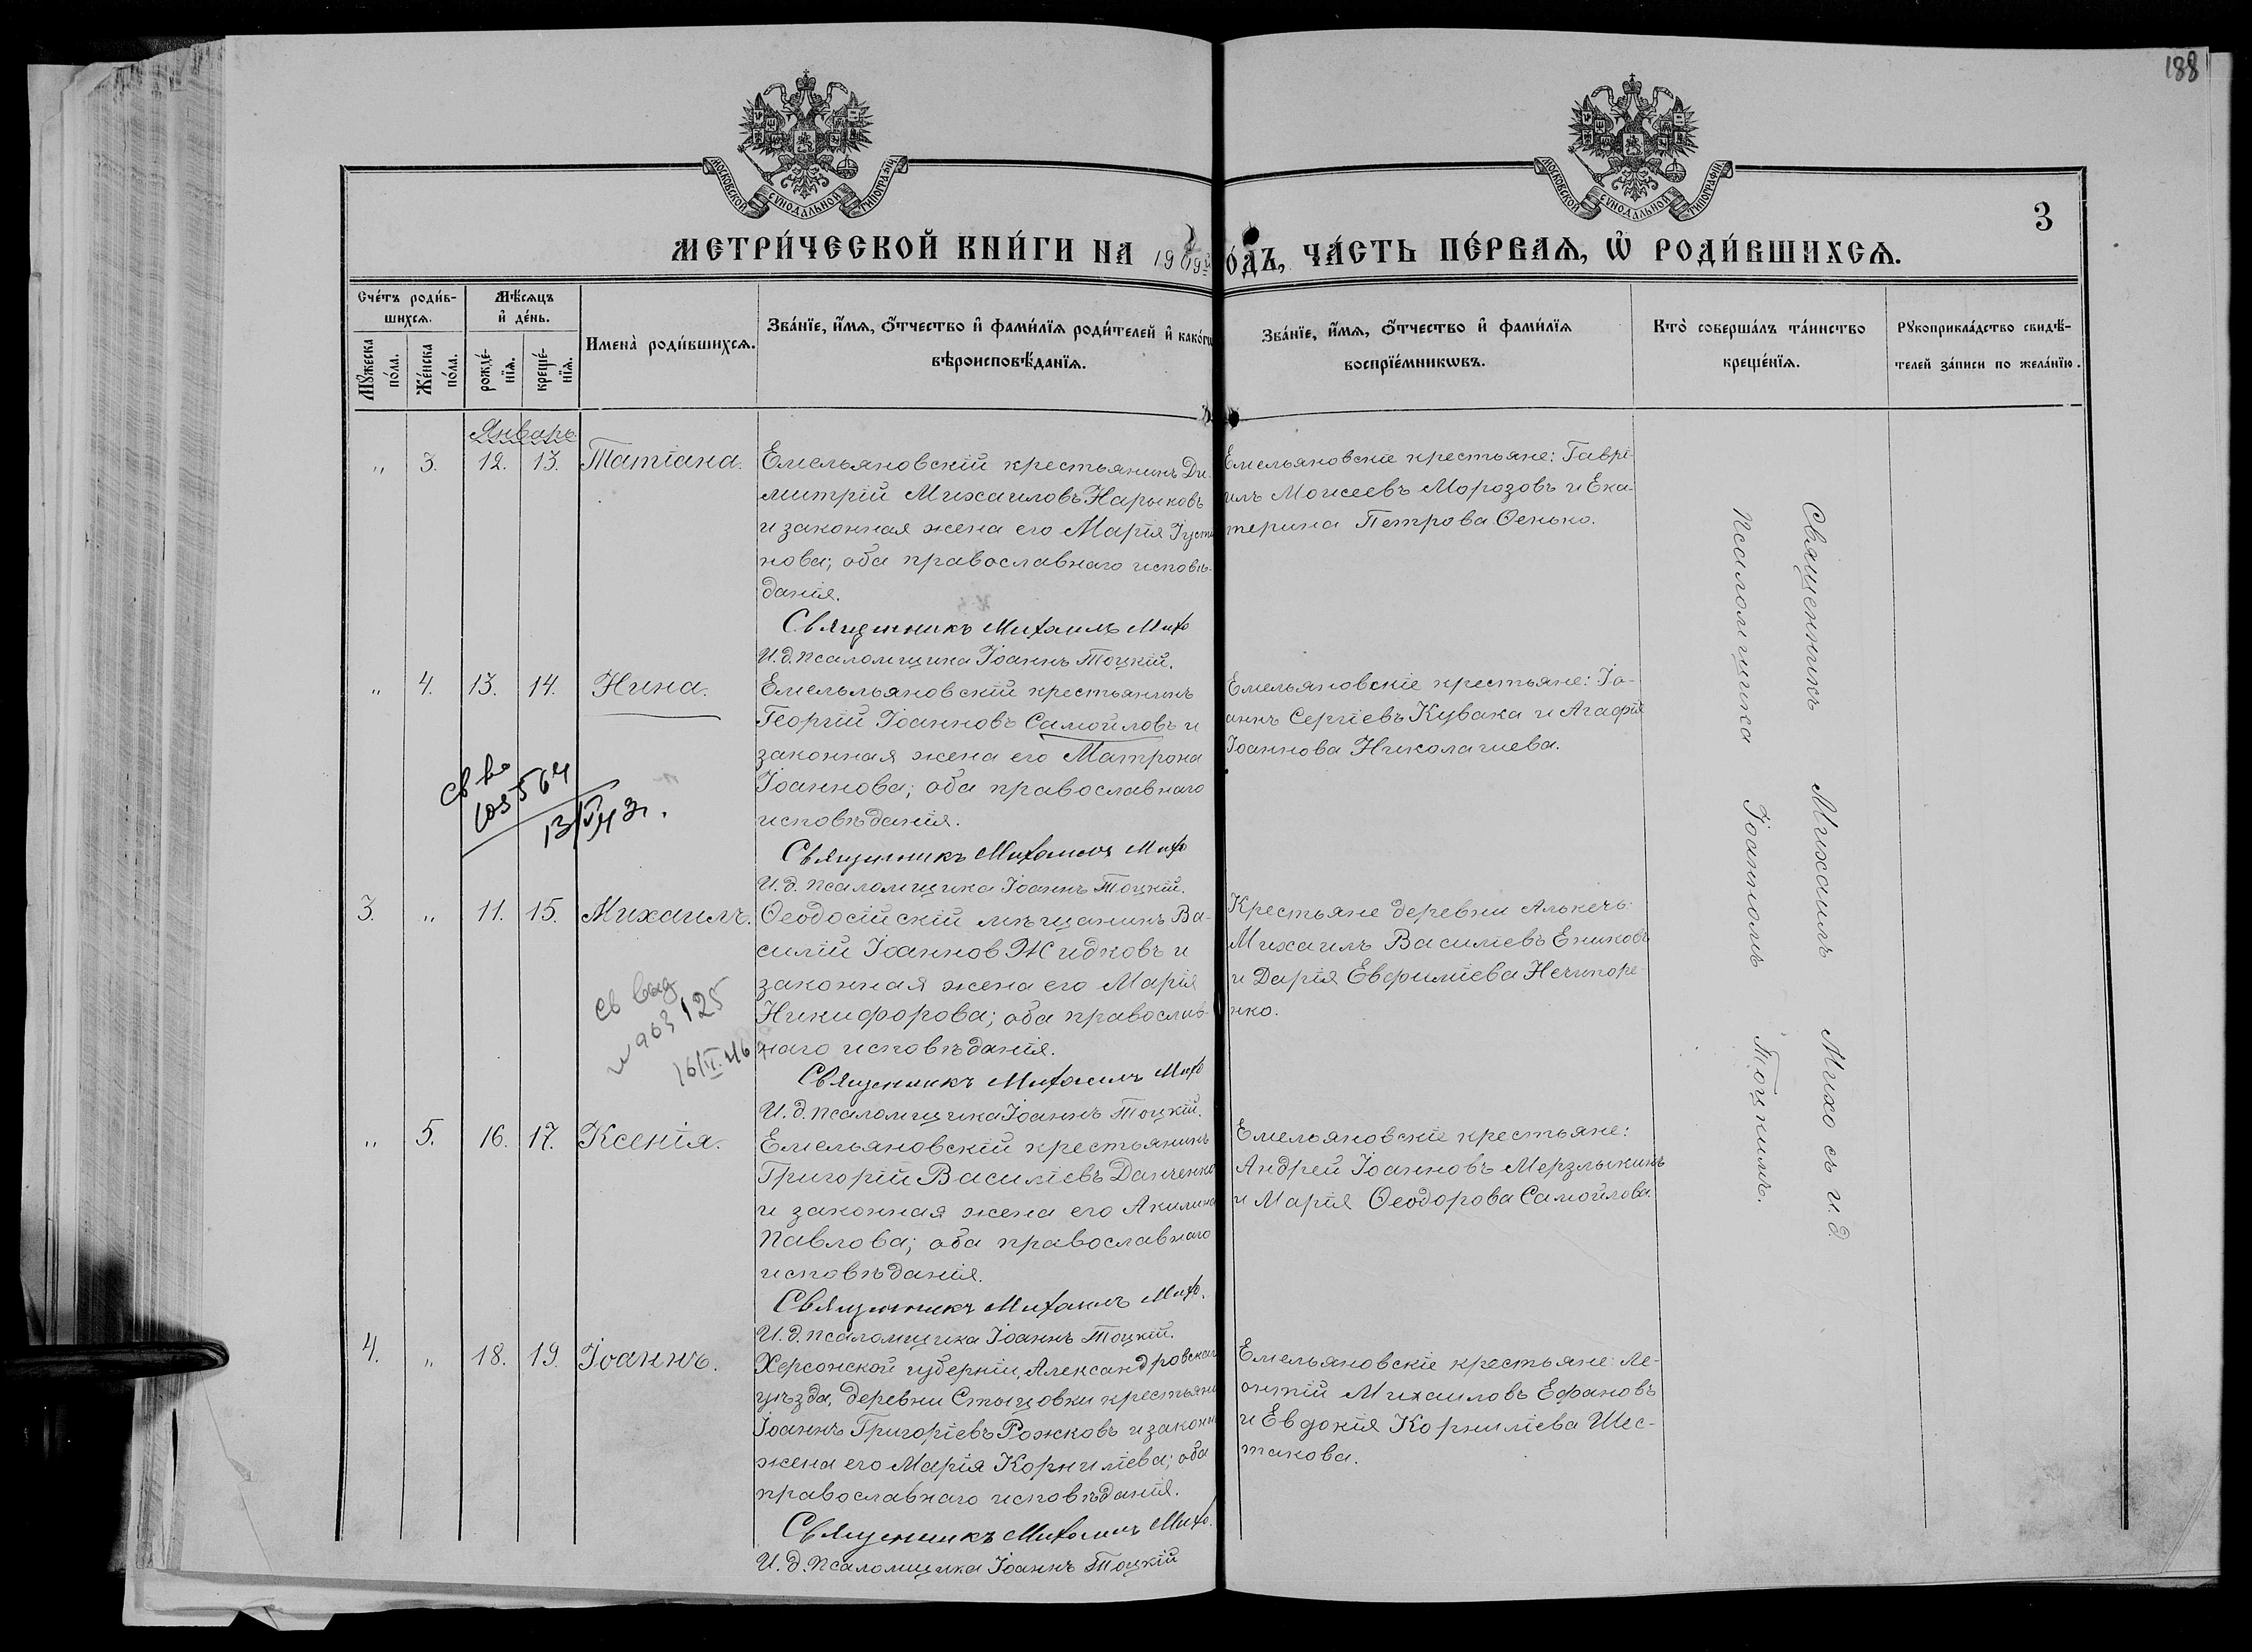 188
МОСКОВСКОЙ СУНОДАЛЬНОЙ ТИПОГРАФІИ
МОСКОВСКОЙ СУНОДАЛЬНОЙ ТИПОГРАФІИ
3
МЕТРИ́ЧЕСКОЙ КНИ́ГИ НА 1909й
О́ДЪ, ЧА́СТЬ ПЕ́РВАѦ, Ѡ҆ РОДИ́ВШИХСѦ.
Сче́тъ роди́в-
шихсѧ.
Мꙋ́жеска по́ла.
Же́нска по́ла.
Мѣ́сѧцъ
и҆ де́нь.
рожде́-
нїѧ.
креще́-
нїѧ.
Имена̀ роди́вшихсѧ.
Зва́нїе, и҆́мѧ, ѻ҆́тчество и҆ фами́лїѧ роди́телей и҆ како́гѡ
вѣроисповѣ́данїѧ.
Зва́нїе, и҆́мѧ, ѻ҆́тчество и҆ фами́лїѧ
воспрїе́мникѡвъ.
Кто̀ соверша́лъ та́инство
креще́нїѧ.
Рꙋкоприкла́дство свидѣ́-
телей за́писи по жела́нїю.
Январь
„ 3. 12. 13. Татіана.
Емельяновскій крестьянинъ Ди-
митрій Михаиловъ Нарыковъ
и законная жена его Марія Іусти
нова; оба православнаго исповѣ-
данія.
Священникъ Михаилъ Михо
И. д. псаломщика Іоаннъ Тоцкій.
Емельяновскіе крестьяне: Гаврі-
илъ Моисеевъ Морозовъ и Ека-
терина Петрова Ѳенько.
„ 4. 13. 14. Нина.
Емелььяновскій крестьянинъ
Георгій Іоанновъ Самойловъ и
законная жена его Матрона
Іоаннова; оба православнаго
исповѣданія.
Священникъ Михаилъ Михо
И. д. псаломщика Іоаннъ Тоцкій.
Емельяновскіе крестьяне: Іо-
аннъ Сергіевъ Кувака и Агафія
Іоаннова Николагиева.
св во
564
3. „ 11. 15. Михаилъ.
Ѳеодосійскій мѣщанинъ Ва-
силій Іоаннов Жидковъ и
законная жена его Марія
Никифорова; оба православ-
наго исповѣданія.
Священникъ Михаилъ Михо
И. д. псаломщика Іоаннъ Тоцкій.
Крестьяне деревни Алькечъ:
Михаилъ Василіевъ Ениковъ
и Дарія Евфиміева Нечипоре-
нко.
св выд
125
16/II.46
„ 5. 16. 17. Ксенія.
Емельяновскій крестьянинъ
Григорій Василіевъ Данченко
и законная жена его Акилина
Павлова; оба православнаго
исповѣданія.
Священникъ Михаилъ Михо.
И. д. псаломщика Іоаннъ Тоцкій.
Емельяновскіе крестьяне:
Андрей Іоанновъ Мерзлыкинъ
и Марія Ѳеодорова Самойлова.
4. „ 18. 19. Іоаннъ.
Херсонской губерніи, Александровскаго
уѣзда, деревни Стоцовки крестьяни
Іоаннъ Григоріевъ Рожковъ и законн
жена его Марія Корниліева; оба
православнаго исповѣданія.
Священникъ Михаилъ Михо.
И. д. псаломщика Іоаннъ Тоцкій
Емельяновскіе крестьяне: Ле-
онтій Михаиловъ Ефановъ
и Евдокія Корниліева Шес-
такова.
Священникъ Михаилъ Михо съ и. д.
псаломщика Іоанномъ Тоцкимъ.